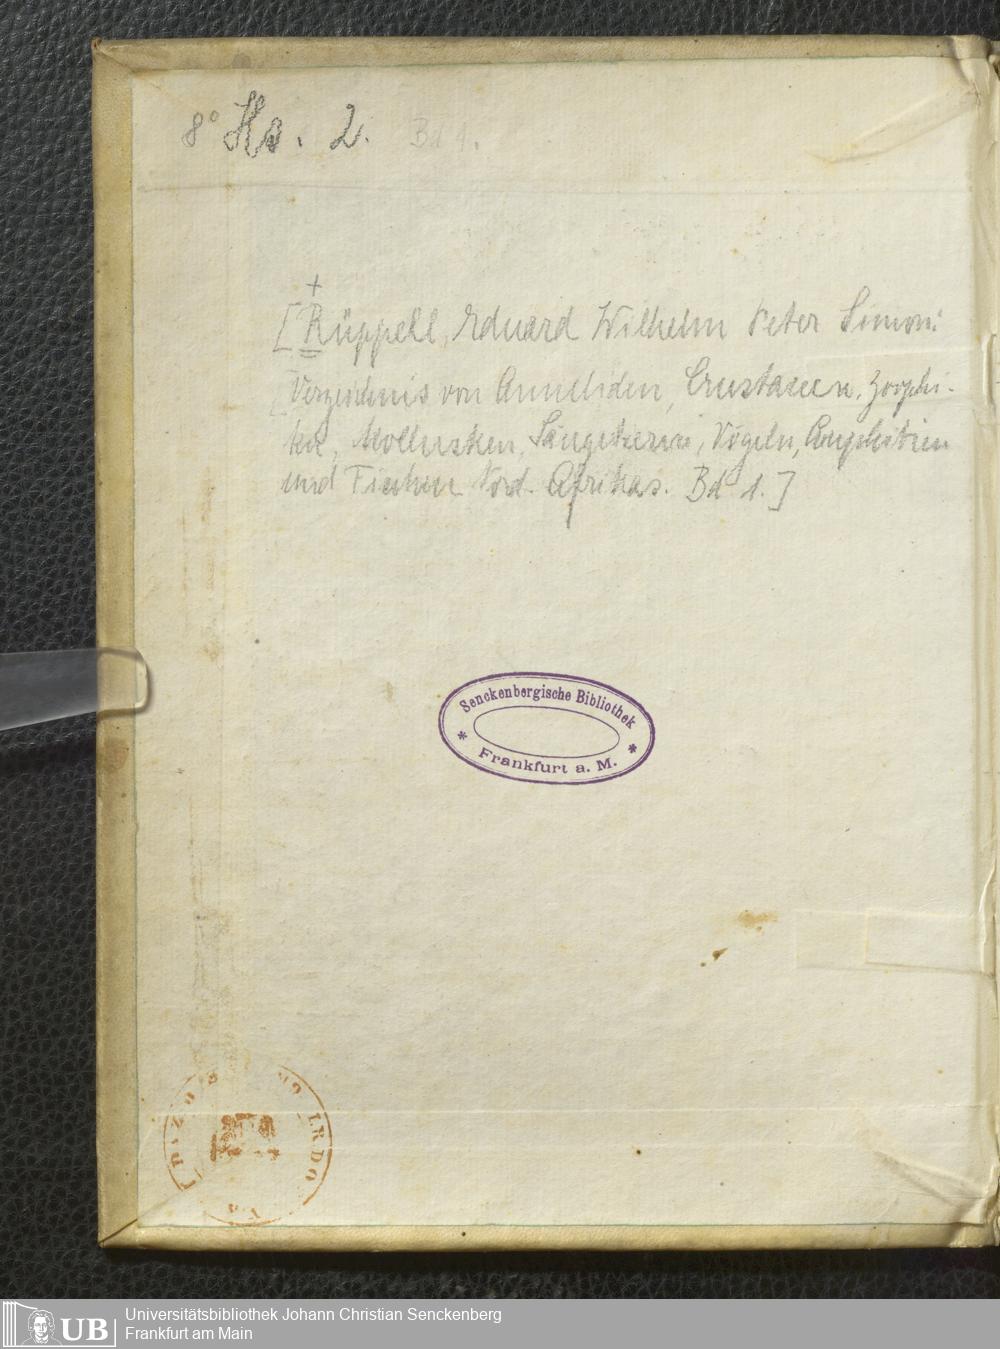 8° Hs. 2. Bd 1.
+
[Rüppell, Eduard Wilhelm Peter Simon:
[Verzeichnis von Anneliden, Crustaceen, Zoophi-
ten, Mollusken, Säugetieren, Vögeln, Amphibien
und Fischen Nord-Afrikas. Bd 1.]
Senckenbergische Bibliothek
* Frankfurt a. M. *
UB Universitätsbibliothek Johann Christian Senckenberg
Frankfurt am Main